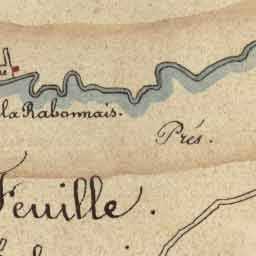 la Rabonnais.
Prés.
Feuille.